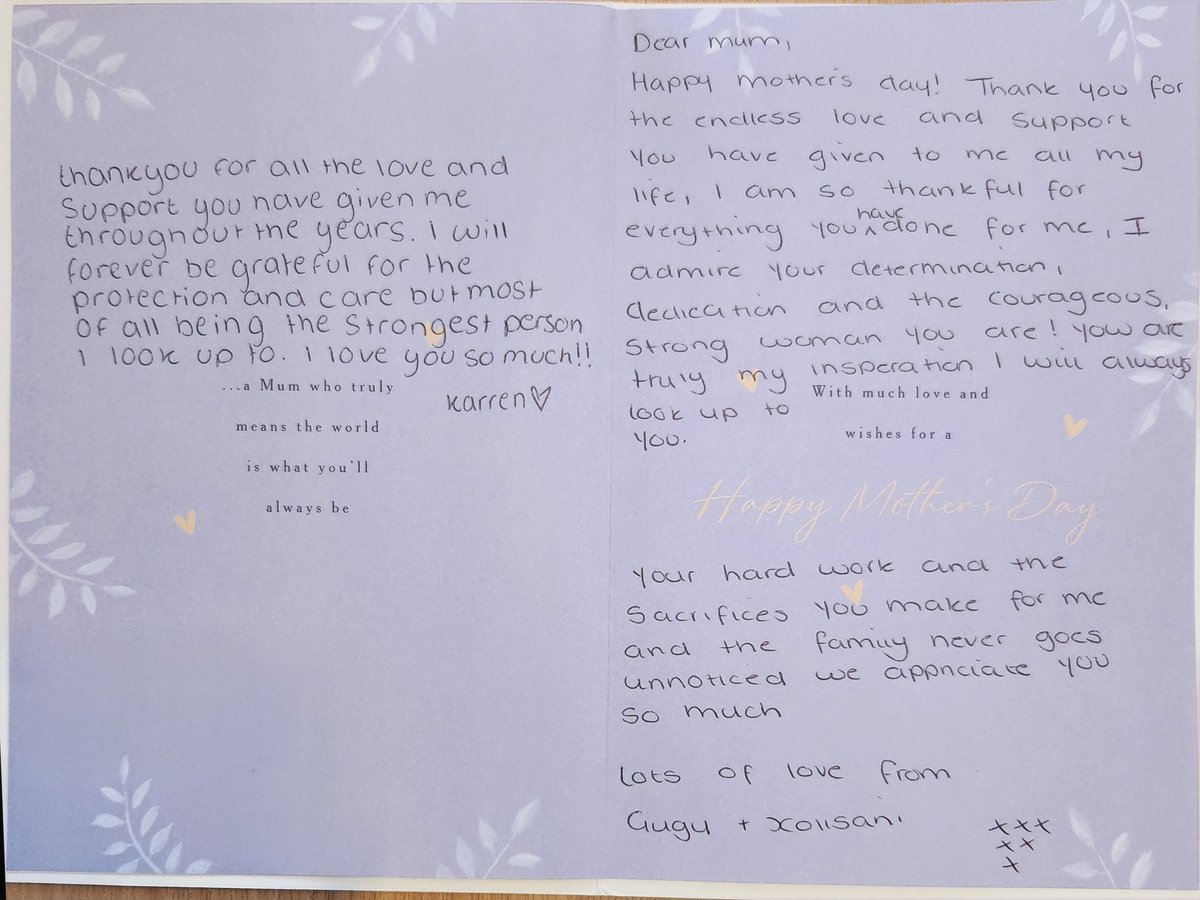 thankyou for all the love and
support you have given me
throughout the years. I will
forever be grateful for the
protection and care but most
of all being the strongest person
I look up to. I love you so much!!
Karren♡
...a Mum who truly
means the world
is what you'll
always be
Dear mum,
Happy mother's day! Thank you for
the endless love and support
you have given to me all my
life, I am so thankful for
everything you have done for me, I
admire your determination,
dedication and the courageous,
strong woman you are! You are
truly my insperation I will always
look up to
you.
With much love and
wishes for a
Happy Mother's Day
Your hard work and the
sacrifices you make for me
and the family never goes
unnoticed we appriciate you
so much
lots of love from
Gugu + Xolisani
xxx
xx
x